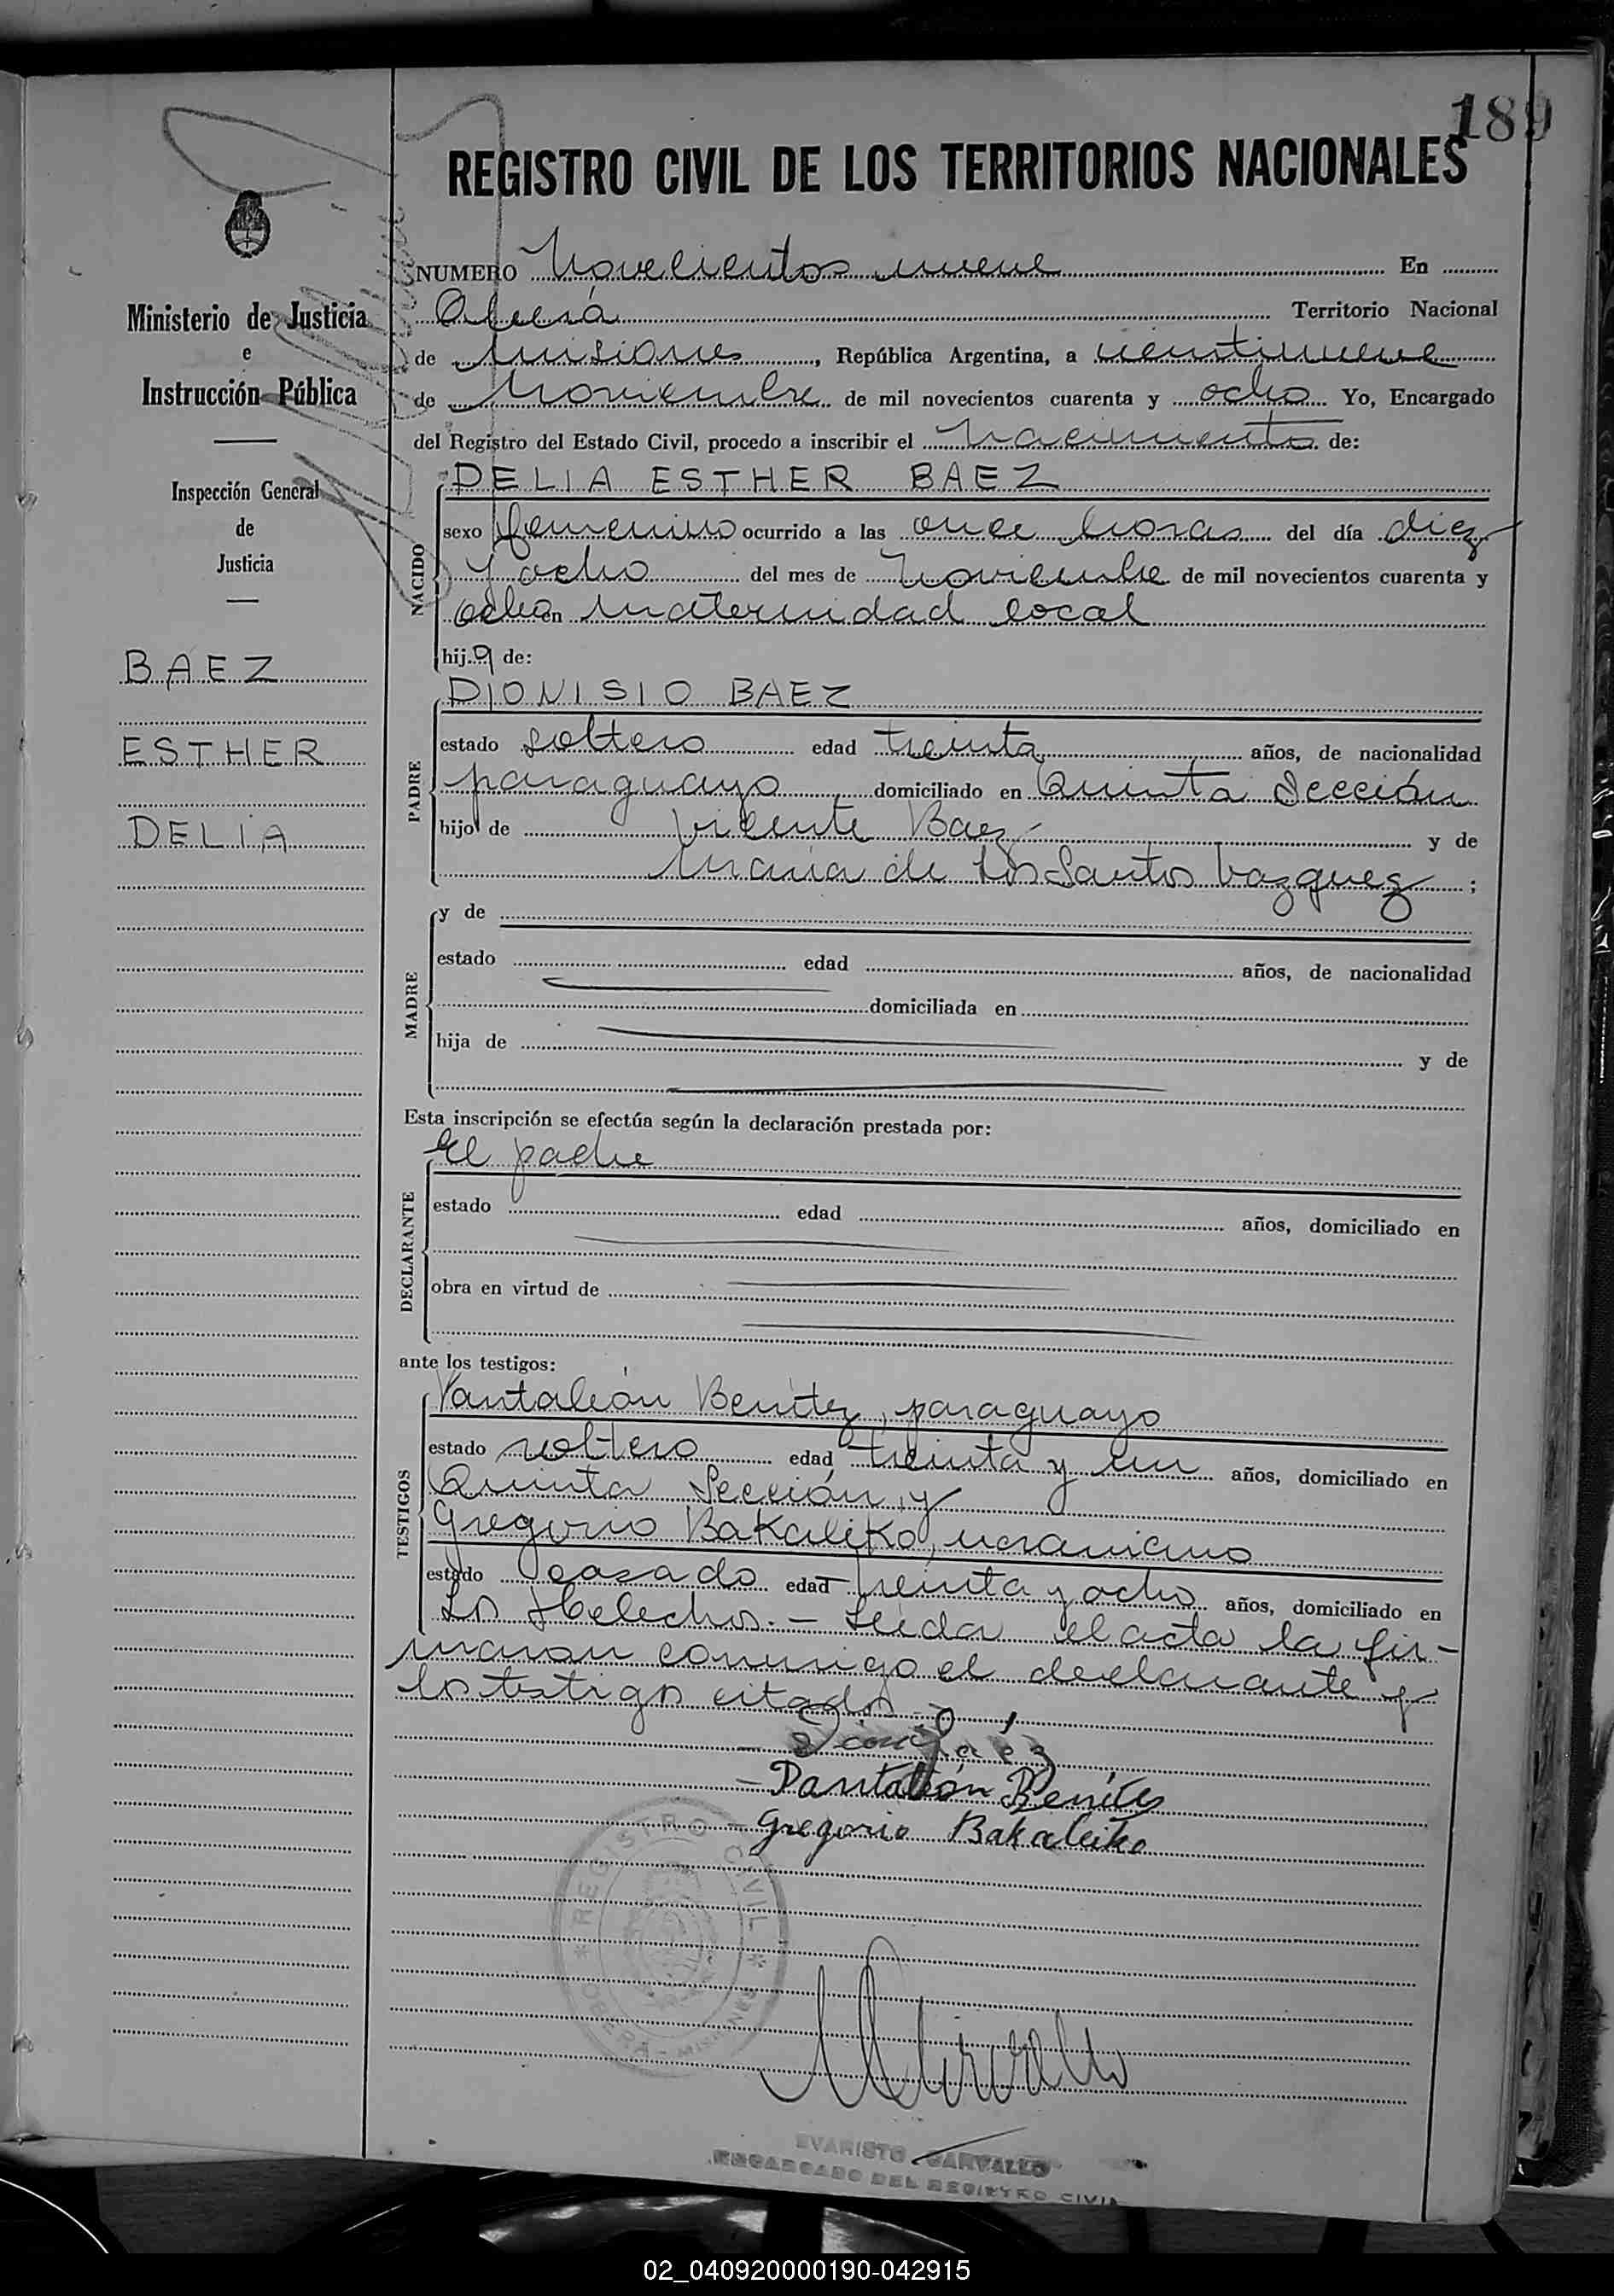 189
REGISTRO CIVIL DE LOS TERRITORIOS NACIONALES
Ministerio de Justicia
e
Instrucción Pública
Inspección General
de
Justicia
BAEZ
ESTHER
DELIA
NUMERO Novecientos nueve En
Oberá Territorio Nacional
de Misiones, República Argentina, a veintinueve
de Noviembre de mil novecientos cuarenta y ocho Yo, Encargado
del Registro del Estado Civil, procedo a inscribir el Nacimiento de:
NACIDO
DELIA ESTHER BAEZ
sexo femenino ocurrido a las once horas del día diez
y ocho del mes de Noviembre de mil novecientos cuarenta y
ocho en Maternidad local
hija de:
PADRE
DIONISIO BAEZ
estado soltero edad treinta años, de nacionalidad
paraguayo domiciliado en Quinta Sección
hijo de Vicente Baez y de
Maria de los Santos Vazquez ;
MADRE
y de
estado edad años, de nacionalidad
domiciliada en
hija de y de
Esta inscripción se efectúa según la declaración prestada por:
DECLARANTE
El padre
estado edad años, domiciliado en
obra en virtud de
ante los testigos:
TESTIGOS
Pantaleón Benitez, paraguayo
estado soltero edad treinta y un años, domiciliado en
Quinta Sección, y
Gregorio Bakaleiko, ucraniano
estado casado edad treinta y ocho años, domiciliado en
Los Helechos.- Leida el acta la fir-
maron conmigo el declarante y
los testigos citados.-
Pantaleón Benítez
- Gregorio Bakaleiko
* REGISTRO CIVIL *
OBERÁ - MISIONES
EVARISTO CARVALLO
ENCARGADO DEL REGISTRO CIVIL
02_040920000190-042915